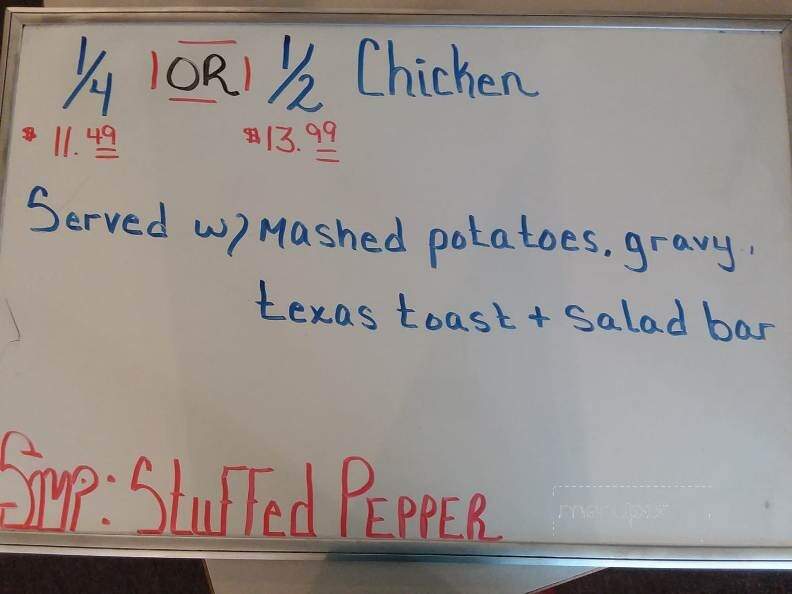 1/4 |OR| 1/2 Chicken
$11.49 $13.99
Served w/ Mashed potatoes, gravy,
texas toast + salad bar
Smp: Stuffed PEPPER